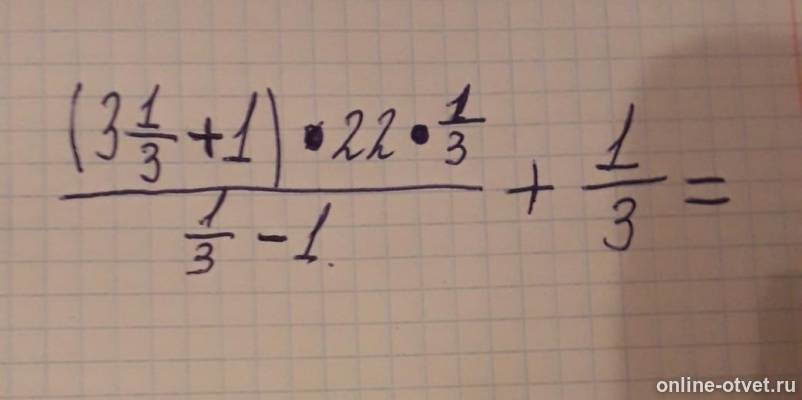 (3 1/3 + 1) • 22 • 1/3
1/3 - 1.
+ 1/3 =
online-otvet.ru